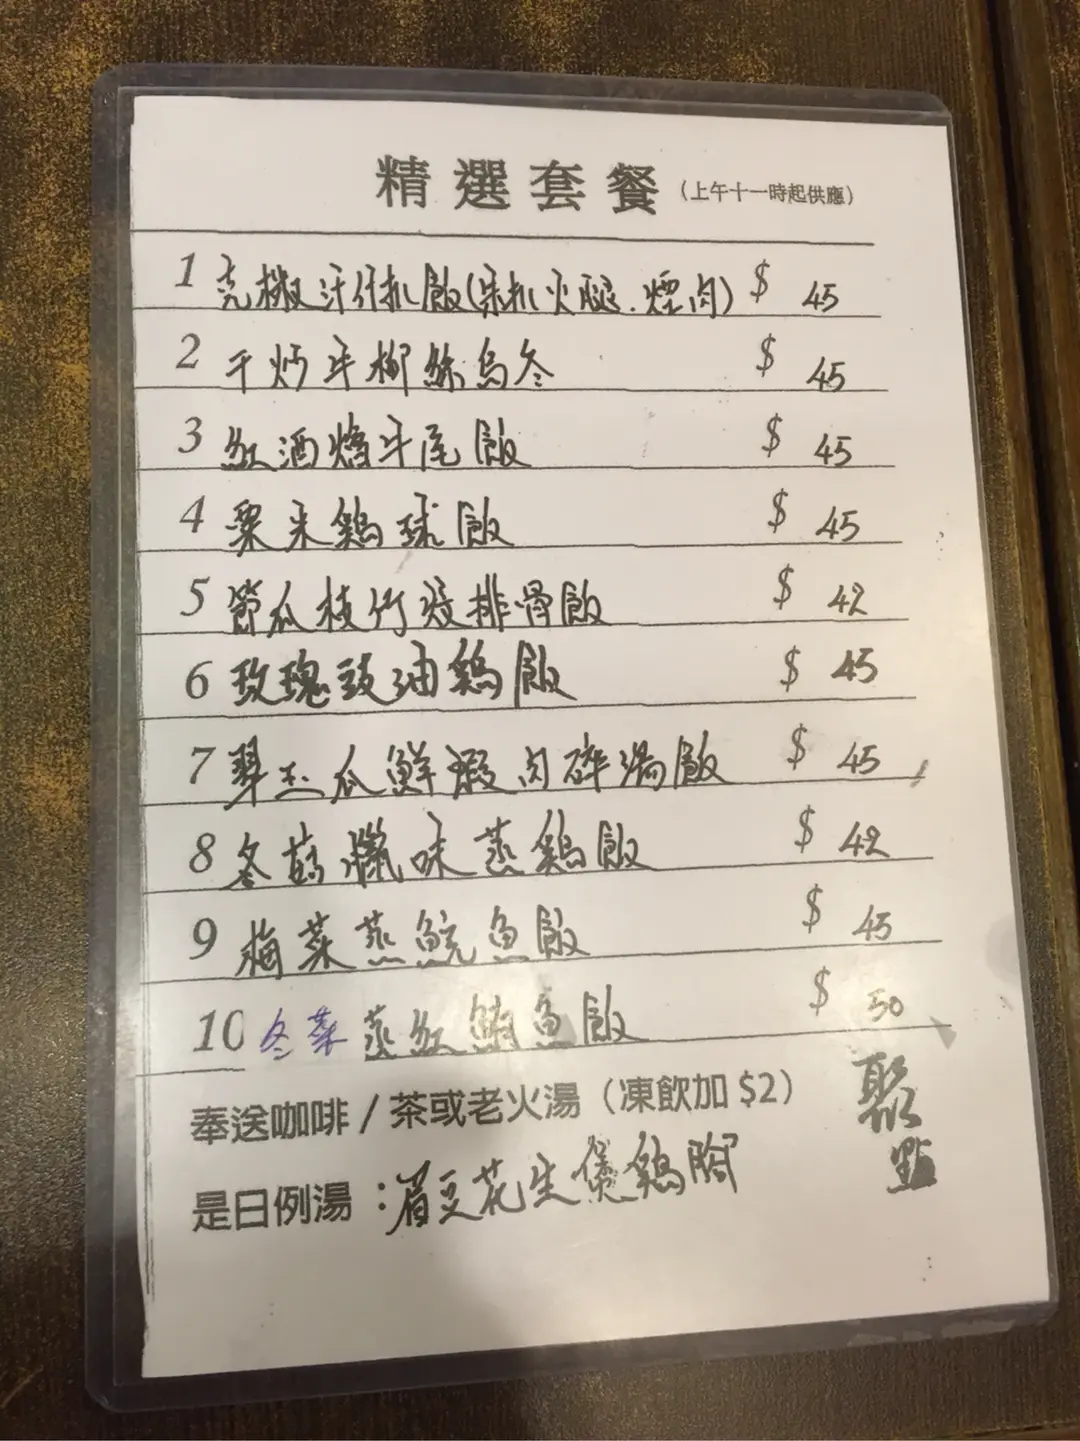 精選套餐（上午十一時起供應）
1 克椒汁什扒飯(朱扒火腿.煙肉) $ 45
2 干炒牛柳絲烏冬 $ 45
3 紅酒燴牛尾飯 $ 45
4 粟米鷄球飯 $ 45
5 節瓜枝竹炆排骨飯 $ 42
6 玫瑰豉油鷄飯 $ 45
7 翠玉瓜鮮蝦肉碎湯飯 $ 45
8 冬菇臘味蒸鷄飯 $ 42
9 梅菜蒸鯇魚飯 $ 45
10 冬菜蒸紅魚飯 $ 50
奉送咖啡 / 茶或老火湯（凍飲加 $2）
是日例湯：眉豆花生煲鷄腳
聚
點